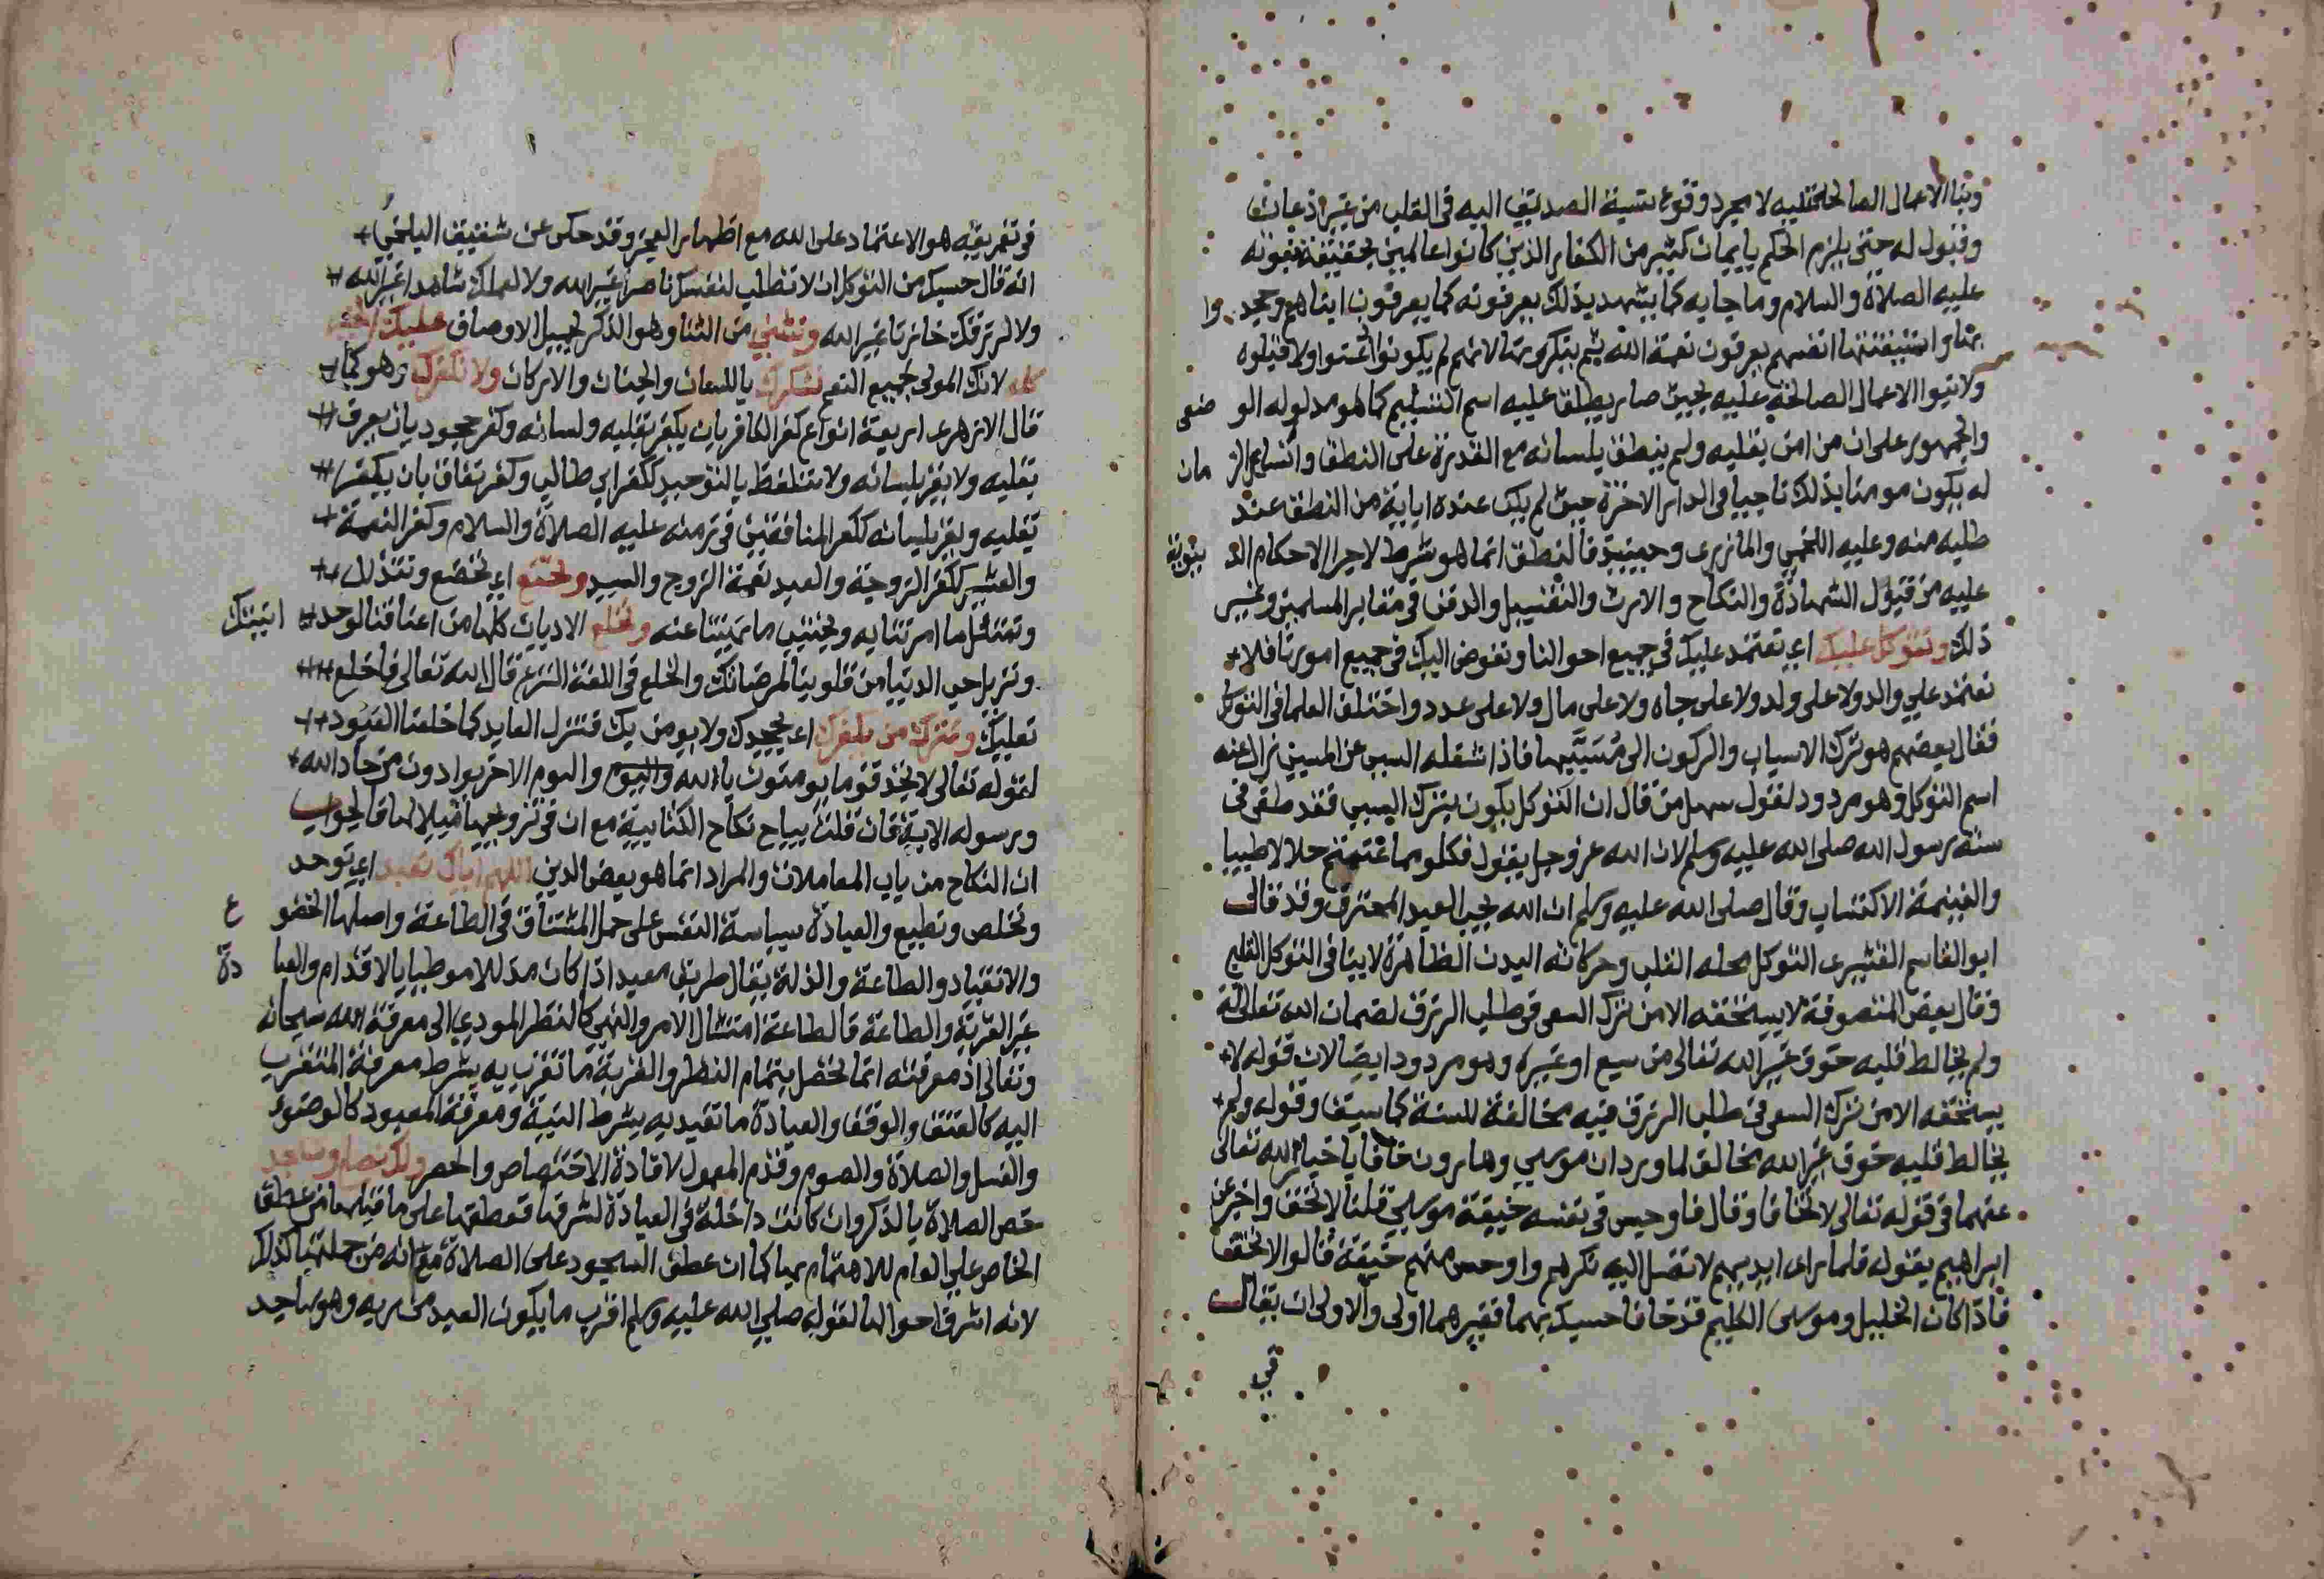 وبنا الاعمال الصالحة عليه لا مجرد وقوع نسبة الصديق اليه فى القلب من غير اذعان
وقبول له حتى يلزم الحكم بايمان كثير من الكفار الذين كانوا عالمين بحقيقة نبوته
عليه الصلاة والسلام وما جا به كما يشهد بذلك يعرفونه كما يعرفون ابناهم وجحدوا
بها واستيقنتها انفسهم يعرفون نعمة الله ثم ينكرونها لانهم لم يكونوا اذعنوا ولا قبلوه
ولا بنوا الاعمال الصالحة عليه بحيث صار يطلق عليه اسم التسليم كما هو مدلوله الوضعى
والجمهور على ان من امن بقلبه ولم ينطق بلسانه مع القدرة على النطق واتساع الزمان
له يكون مومنا بذلك ناجيا فى الدار الاخرة حيث لم يكن عنده اباية من النطق عند
طلبه منه وعليه اللخمي والمازرى وحينيذ فالنطق انما هو شرط لاجرا الاحكام الدنيوية
عليه من قبول الشهادة والنكاح والارث والتغسيل والدفن فى مقابر المسلمين وغير
ذلك ونتوكل عليك اي نعتمد عليك في جميع احوالنا ونفوض اليك فى جميع امورنا فلا
نعتمد علي والد ولا على ولد ولا على جاه ولا على مال ولا على عدد واختلف العلما فى التوكل
فقال بعضهم هو ترك الاسباب والركون الى مسببها فاذا شغله السبب عن المسبب زال عنه
اسم التوكل وهو مردود لقول سهل من قال ان التوكل يكون بترك السبب فقد طعن فى
سنة رسول الله صلى الله عليه وسلم لان الله عز وجل يقول فكلوا مما غنمتم حلالا طيبا
والغنيمة الاكتساب وقال صلى الله عليه وسلم ان الله يحب العبد المحترف وقد قال
ابو القاسم القشيرى التوكل محله القلب وحركاته البدن الظاهرة لا ينافى التوكل القلبي
وقال بعض المتصوفة لا يستحقه الا من ترك السعى فى طلب الرزق لضمان الله تعالى له
ولم يخالط قلبه خوف غير الله تعالى من سبع او غيره وهو مردود ايضا لان قوله لا
يستحقه الا من ترك السعى فى طلب الرزق فيه مخالفة للسنة كما سبق وقوله ولم
يخالط قلبه خوف غير الله مخالف لما ورد ان موسي وهارون خافا باخبار الله تعالى
عنهما فى قوله تعالى لا تخافا وقال فاوجس فى نفسه خيفة موسى قلنا لا تخف واخبر عن
ابراهيم بقوله فلما راى ايديهم لا تصل اليه نكرهم واوجس منهم خيفة قالوا لا تخف
فاذا كان الخليل وموسى الكليم قد خافا حسبك بهما فغيرهما اولى والاولى ان يقال
في
فى تعريفه هو الاعتماد على الله مع اظهار العجز وقد حكى عن شقيق البلخي
انه قال حسبك من التوكل ان لا تطلب لنفسك ناصرا غير الله ولا لعملك شاهدا غير الله
ولا لرزقك خازنا غير الله ونثني من الثنا وهو الذكر لجميل الاوصاف عليك الخير
كله لانك المولى لجميع النعم نشكرك باللسان والجنان والاركان ولا نكفرك وهو كما
قال الازهرى اربعة انواع كفر الكافر بان يكفر بقلبه ولسانه وكفر جحود بان يعرف
بقلبه ولا يقر بلسانه ولا يتلفظ بالتوحيد ككفر ابي طالب وكفر نفاق بان يكفر
بقلبه ويقر بلسانه ككفر المنافقين فى زمنه عليه الصلاة والسلام وكفر النعمة
والعشير ككفر الزوجة والعبد نعمة الزوج والسيد ونخنع اي نخضع ونتذلل
ونمتثل ما امرتنا به ونجتنب ما نهيتنا عنه ونخلع الاديان كلها من اعناقنا لوحدانيتك
ونزيل حب الدنيا من قلوبنا لمرضاتك والخلع فى اللغة النزع قال الله تعالى فاخلع
نعليك ونترك من يكفرك اى يجحدك ولا يومن بك فنترك العابد كما خلعنا المعبود
لقوله تعالى لا تجد قوما يومنون بالله واليوم واليوم الاخر يوادون من حاد الله
ورسوله الاية فان قلت يباح نكاح الكتابية مع ان فى تزوجها ميلا لها فالجواب
ان النكاح من باب المعاملات والمراد انما هو بغض الدين اللهم اياك نعبد اي نوحد
ونخلص ونطيع والعبادة سياسة النفس على حمل المشاق فى الطاعة واصلها الخضوع
والانقياد والطاعة والذلة يقال طريق معبد اذا كان مذللا موطيا بالاقدام والعبادة
غير القربة والطاعة فالطاعة امتثال الامر والنهي كالنظر المودي الى معرفة الله سبحانه
وتعالى اذ معرفته انما تحصل بتمام النظر والقربة ما تقرب به بشرط معرفة المتقرب
اليه كالعتق والوقف والعبادة ما تعبد به بشرط النية ومعرفة المعبود كالوضوء
والغسل والصلاة والصوم وقدم المعمول لافادة الاختصاص والحصر ولك نصلي ونسجد
خص الصلاة بالذكر وان كانت داخلة فى العبادة لشرفها فعطفها على ما قبلها من عطف
الخاص علي العام للاهتمام بها كما ان عطف السجود على الصلاة مع انه من جملتها كذلك
لانه اشرف احوالها لقوله صلي الله عليه وسلم اقرب ما يكون العبد من ربه وهو ساجد